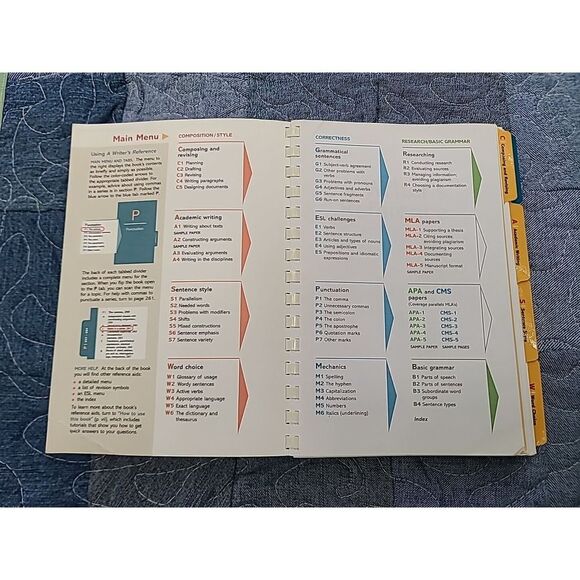 Main Menu
Using A Writer's Reference
MAIN MENU AND TABS. The menu to
the right displays the book's contents
as briefly and simply as possible.
Follow the color-coded arrows to
the appropriate tabbed divider. For
example, advice about using commas
in a series is in section P. Follow the
blue arrow to the blue tab marked P.
P
Punctuation
The back of each tabbed divider
includes a complete menu for the
section. When you flip the book open
to the P tab you can scan the menu
for a topic. For help with commas to
punctuate a series, turn to page 261.
MORE HELP. At the back of the book
you will find other reference aids:
a detailed menu
a list of revision symbols
an ESL menu
the index
To learn more about the book's
reference aids, turn to "How to use
this book" (p. vii), which includes
tutorials that show you how to get
quick answers to your questions.
COMPOSITION/STYLE
Composing and
revising
C1 Planning
C2 Drafting
C3 Revising
C4 Writing paragraphs
C5 Designing documents
Academic writing
A1 Writing about texts
SAMPLE PAPER
A2 Constructing arguments
SAMPLE PAPER
A3 Evaluating arguments
A4 Writing in the disciplines
Sentence style
S1 Parallelism
S2 Needed words
S3 Problems with modifiers
S4 Shifts
S5 Mixed constructions
S6 Sentence emphasis
S7 Sentence variety
Word choice
W1 Glossary of usage
W2 Wordy sentences
W3 Active verbs
W4 Appropriate language
W5 Exact language
W6 The dictionary and
thesaurus
CORRECTNESS
Grammatical
sentences
G1 Subject-verb agreement
G2 Other problems with
verbs
G3 Problems with pronouns
G4 Adjectives and adverbs
G5 Sentence fragments
G6 Run-on sentences
ESL challenges
E1 Verbs
E2 Sentence structure
E3 Articles and types of nouns
E4 Using adjectives
E5 Prepositions and idiomatic
expressions
Punctuation
P1 The comma
P2 Unnecessary commas
P3 The semicolon
P4 The colon
P5 The apostrophe
P6 Quotation marks
P7 Other marks
Mechanics
M1 Spelling
M2 The hyphen
M3 Capitalization
M4 Abbreviations
M5 Numbers
M6 Italics (underlining)
RESEARCH/BASIC GRAMMAR
Researching
R1 Conducting research
R2 Evaluating sources
R3 Managing information;
avoiding plagiarism
R4 Choosing a documentation
style
MLA papers
MLA-1 Supporting a thesis
MLA-2 Citing sources;
avoiding plagiarism
MLA-3 Integrating sources
MLA-4 Documenting
sources
MLA-5 Manuscript format
SAMPLE PAPER
APA and CMS
papers
(Coverage parallels MLA's)
APA-1 CMS-1
APA-2 CMS-2
APA-3 CMS-3
APA-4 CMS-4
APA-5 CMS-5
SAMPLE PAPER SAMPLE PAGES
Basic grammar
B1 Parts of speech
B2 Parts of sentences
B3 Subordinate word
groups
B4 Sentence types
Index
C Composing and Revising
A Academic Writing
S Sentence Style
W Word Choice